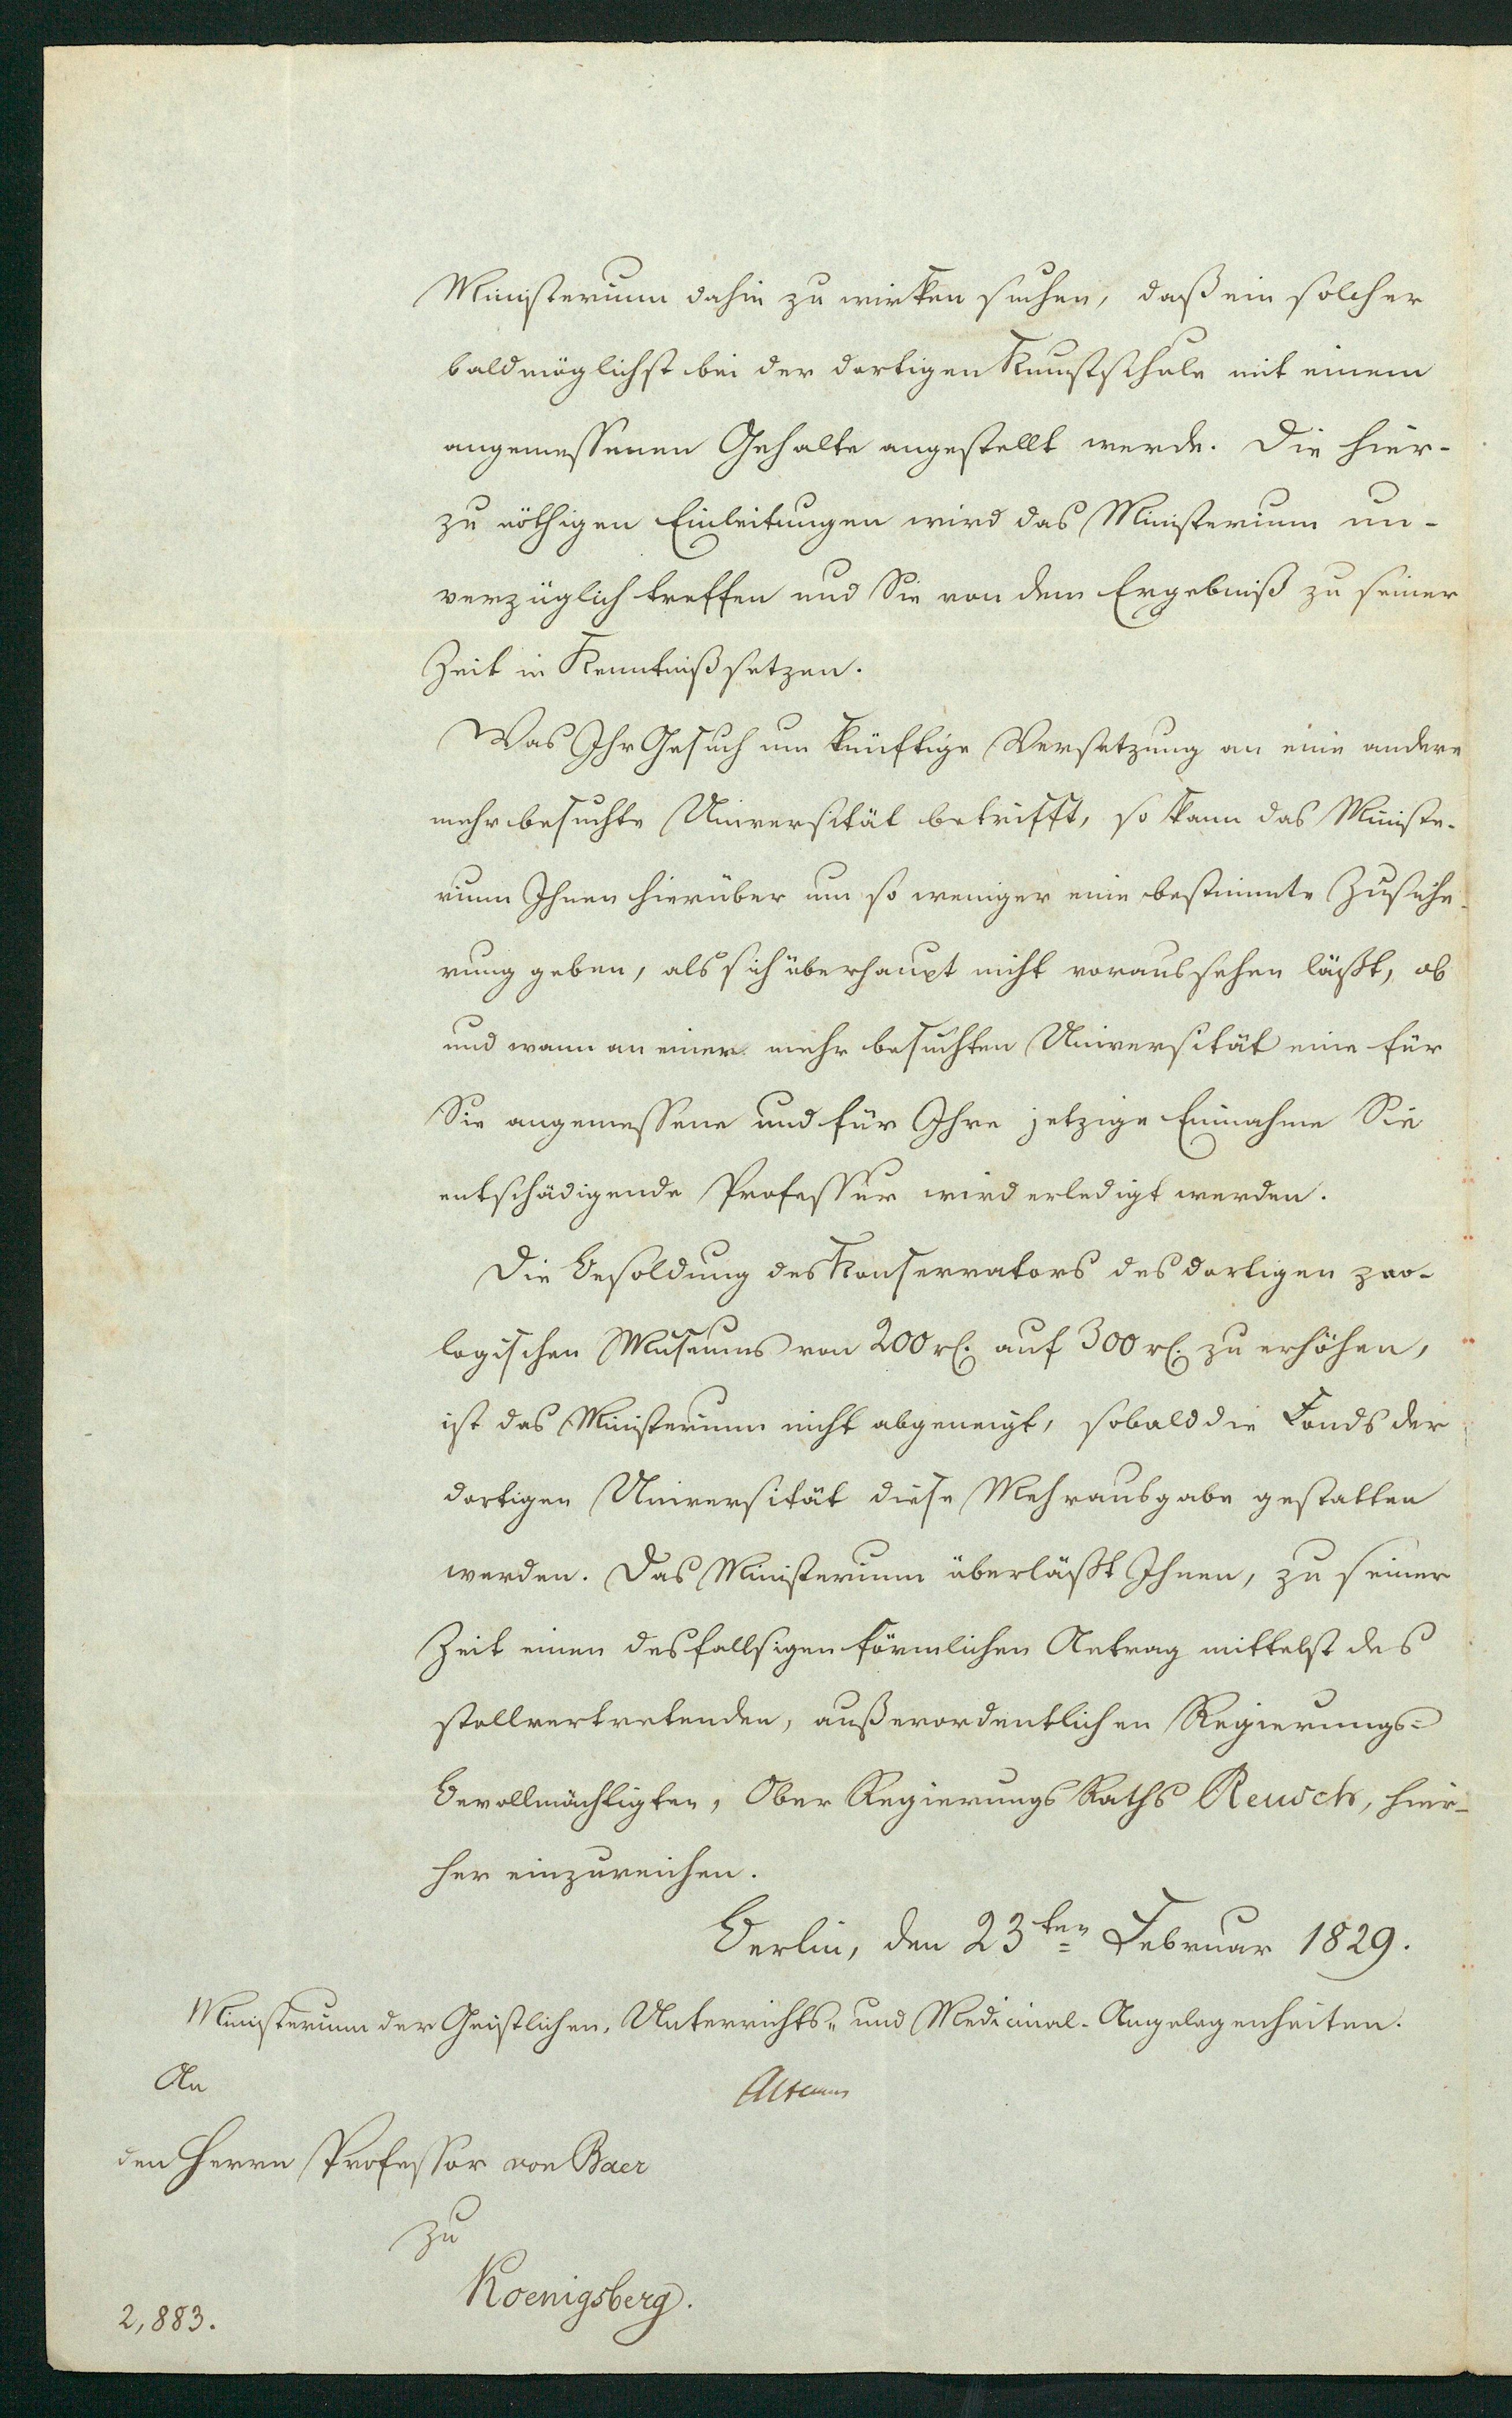 Ministerium dahin zu wirken suchen, daß ein solcher
baldmöglichst bei der dortigen Kunstschule mit einem
angemessenen Gehalte angestellt werde. Die hier-
zu nöthigen Einleitungen wird das Ministerium un-
verzüglich treffen und Sie von dem Ergebniß zu seiner
Zeit in Kenntniß setzen.
Was Ihr Gesuch um künftige Versetzung an eine andere
mehr besuchte Universität betrifft, so kann das Ministe-
rium Ihnen hierüber um so weniger eine bestimmte Zusiche-
rung geben, als sich überhaupt nicht voraussehen läßt, ob
und wann an einer mehr besuchten Universität eine für
Sie angemessene und für Ihre jetzige Einnahme Sie
entschädigende Professur wird erledigt werden.
Die Besoldung des Konservators des dortigen zoo-
logischen Museums von 200 rl. auf 300 rl. zu erhöhen,
ist das Ministerium nicht abgeneigt, sobald die Fonds der
dortigen Universität diese Mehrausgabe gestatten
werden. Das Ministerium überläßt Ihnen, zu seiner
Zeit einen desfallsigen förmlichen Antrag mittelst des
stellvertretenden, außerordentlichen Regierungs=
Bevollmächtigten, Ober Regierungs Raths Reusch, hier-
her einzureichen.
Berlin, den 23ten Februar 1829.
Ministerium der Geistlichen, Unterrichts- und Medicinal-Angelegenheiten.
An
Altenstein
den Herrn Professor von Baer
zu
Koenigsberg.
2,883.